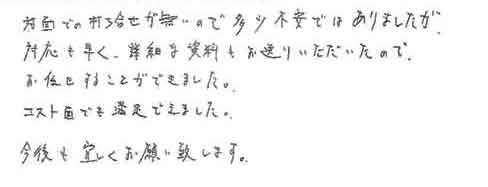 対面での打ち合せが無いので多少不安ではありましたが、
対応も早く、詳細な資料もお送りいただいたので、
お任せすることができました。
コスト面でも満足できました。
今後も宜しくお願い致します。